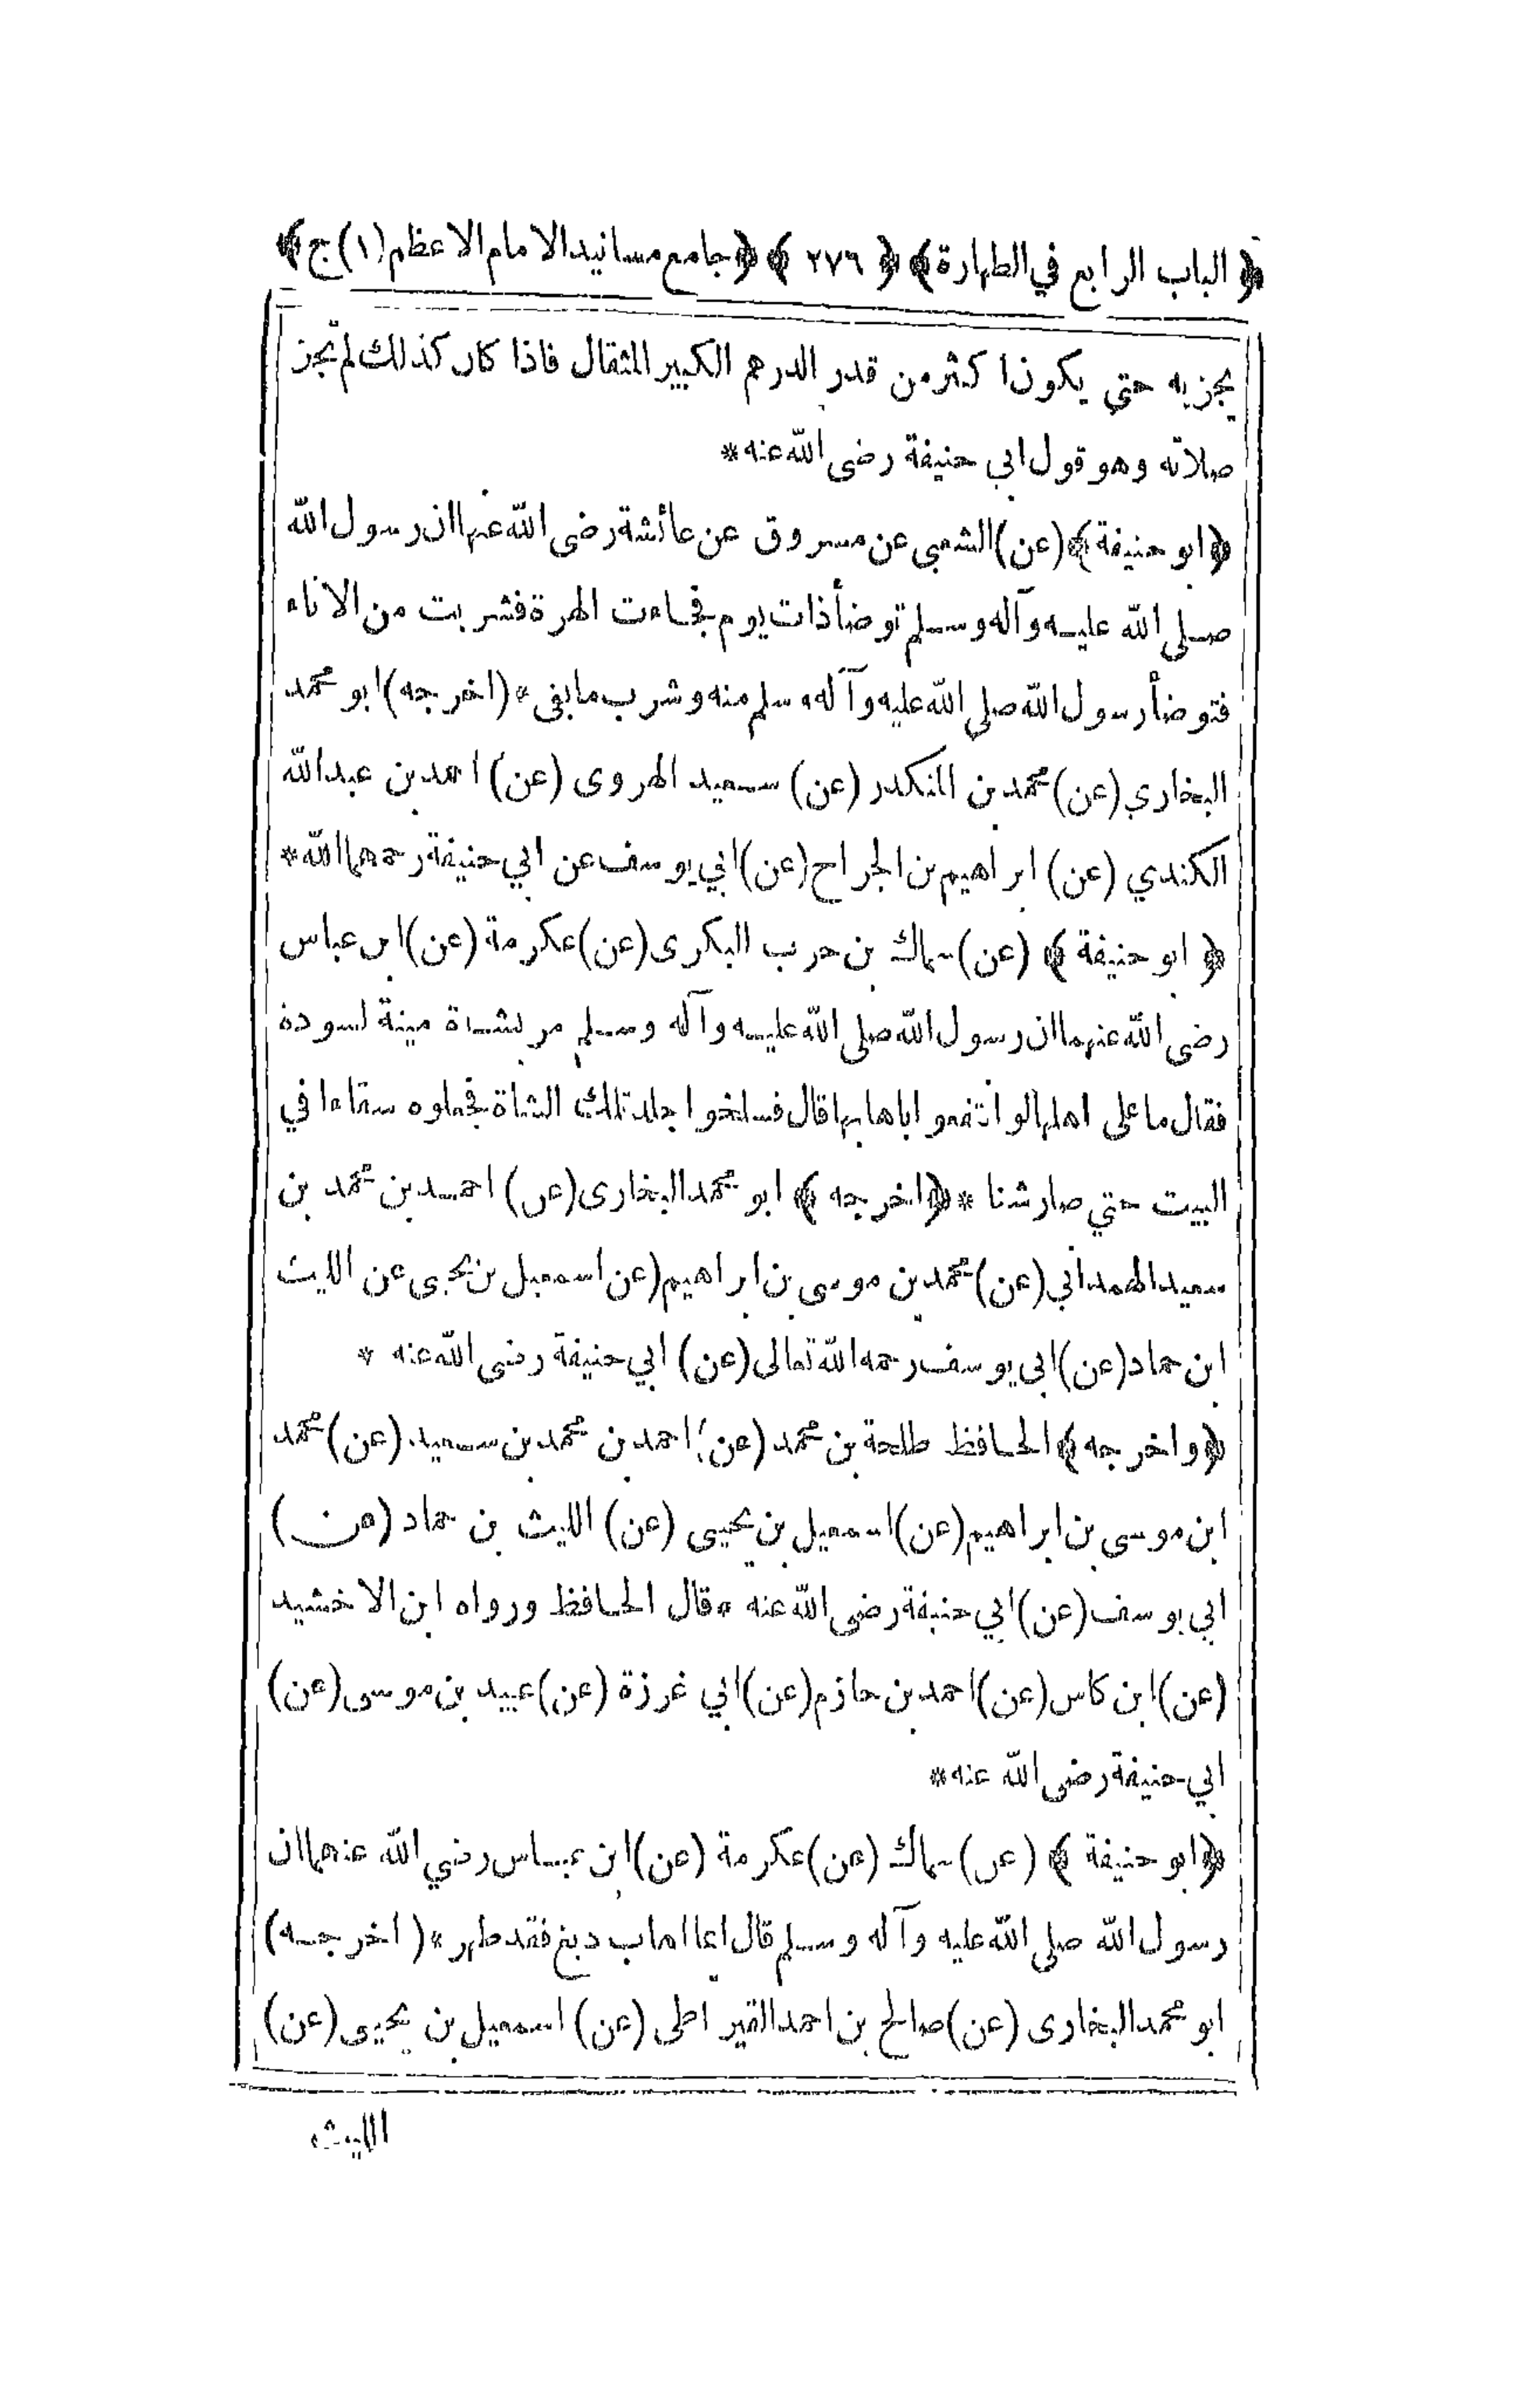 ﴿ الباب الرابع في الطهارة ﴾ ﴿ ٢٧٦ ﴾ ﴿ جامع مسانيد الامام الاعظم (١) ج ﴾
يجزيه حتي يكون اكثر من قدر الدرهم الكبير المثقال فاذا كان كذلك لم تجز
صلاته وهو قول ابي حنيفة رضى الله عنه *
﴿ ابو حنيفة ﴾ (عن) الشعبي عن مسروق عن عائشة رضى الله عنها ان رسول الله
صلى الله عليه وآله وسلم توضأ ذات يوم فجاءت الهرة فشربت من الاناء
فتوضأ رسول الله صلى الله عليه وآله وسلم منه وشرب ما بقى * (اخرجه) ابو محمد
البخاري (عن) محمد بن المنكدر (عن) سعيد الهروى (عن) احمد بن عبدالله
الكندي (عن) ابراهيم بن الجراح (عن) ابي يوسف عن ابي حنيفة رحمهما الله *
﴿ ابو حنيفة ﴾ (عن) سماك بن حرب البكرى (عن) عكرمة (عن) ابن عباس
رضى الله عنهما ان رسول الله صلى الله عليه وآله وسلم مر بشاة ميتة لسودة
فقال ما على اهلها لو انتفعوا باهابها قال فسلخوا جلد تلك الشاة فجعلوه سقاءا في
البيت حتي صار شنا * ﴿ اخرجه ﴾ ابو محمد البخارى (عن) احمد بن محمد بن
سعيد الهمداني (عن) محمد بن موسى بن ابراهيم (عن اسمعيل بن يحيى عن الليث
ابن حماد (عن) ابى يوسف رحمه الله تعالى (عن) ابي حنيفة رضى الله عنه *
﴿ واخرجه ﴾ الحافظ طلحة بن محمد (عن) احمد بن محمد بن سعيد (عن) محمد
ابن موسى بن ابراهيم (عن) اسمعيل بن يحيى (عن) الليث بن حماد (عن)
ابى يوسف (عن) ابي حنيفة رضى الله عنه * قال الحافظ ورواه ابن الاخشيد
(عن) ابن كاس (عن) احمد بن حازم (عن) ابي غرزة (عن) عبيد بن موسى (عن)
ابي حنيفة رضى الله عنه *
﴿ ابو حنيفة ﴾ (عن) سماك (عن) عكرمة (عن) ابن عباس رضي الله عنهما ان
رسول الله صلى الله عليه وآله وسلم قال ايما اهاب دبغ فقد طهر * (اخرجه)
ابو محمد البخارى (عن) صالح بن احمد القيراطى (عن) اسمعيل بن يحيى (عن)
الليث